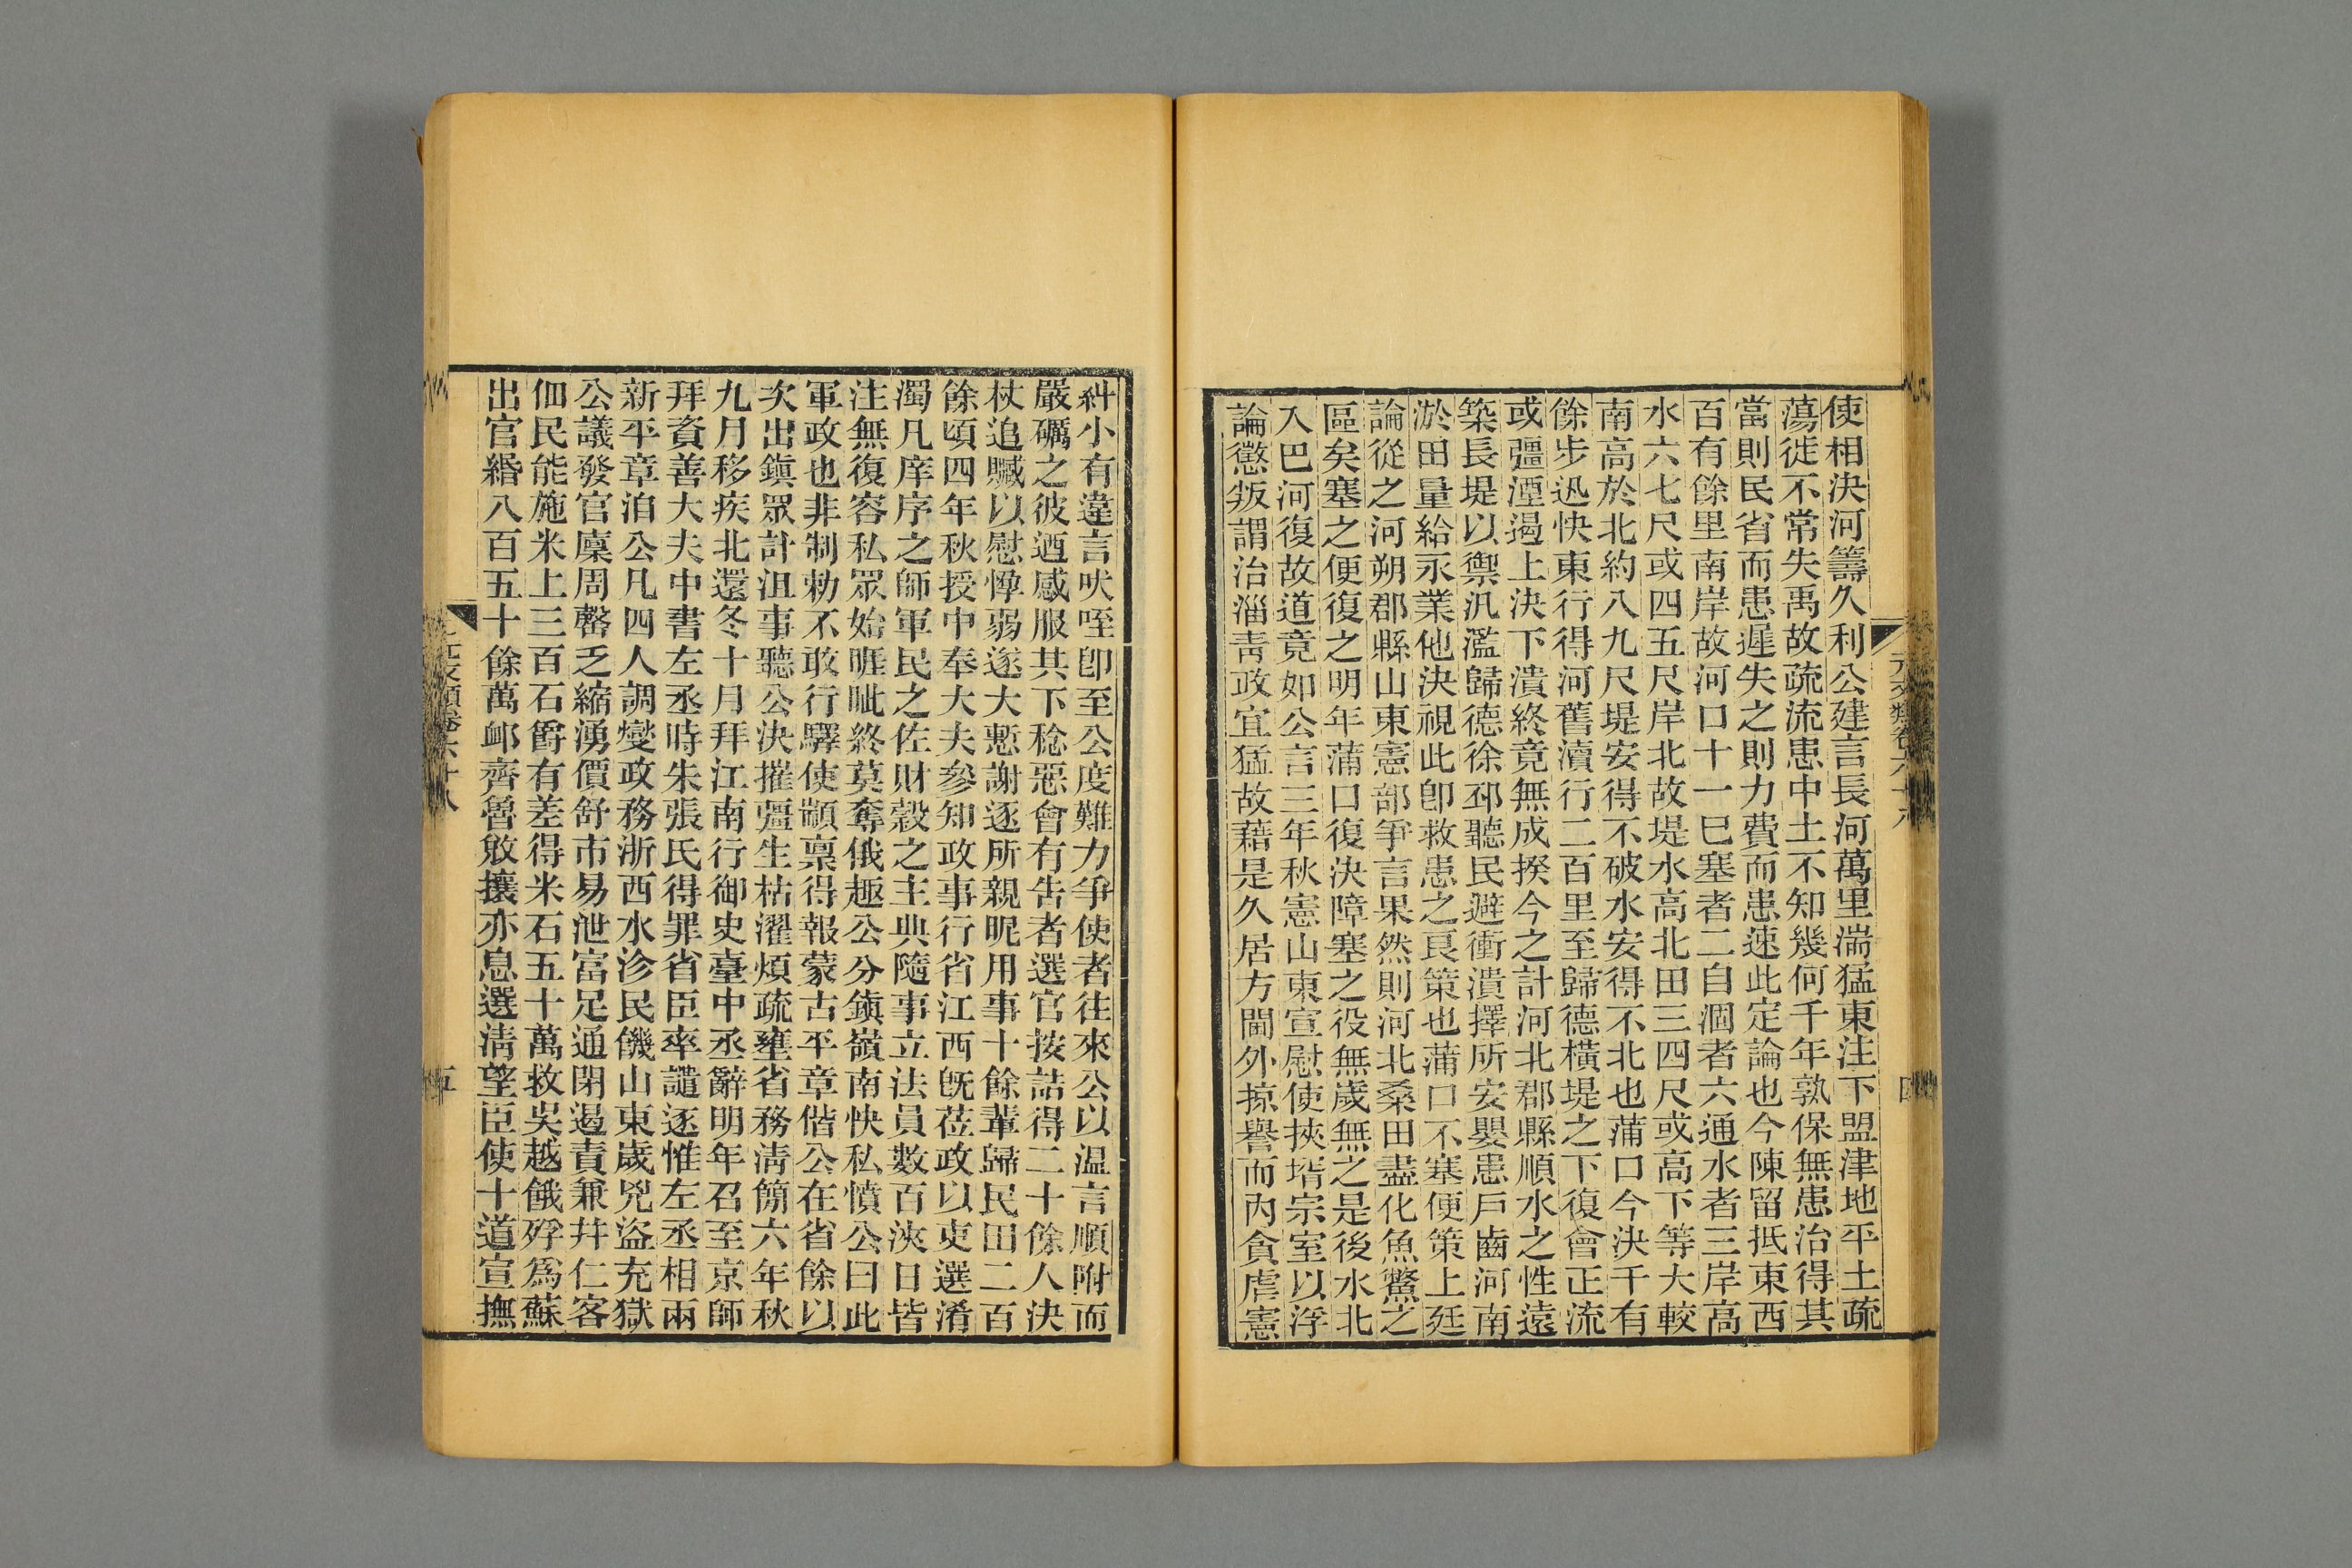 使相決河籌久利公建言長河萬里湍猛東注下盟津地平土疏
蕩徙不常失禹故疏流患中土不知幾何千年孰保無患治得其
當則民省而患遲失之則力費而患速此定論也今陳留抵東西
百有餘里南岸故河口十一巳塞者二自涸者六通水者三岸高
水六七尺或四五尺岸北故堤水高北田三四尺或高下等大較
南高於北約八九尺堤安得不破水安得不北也蒲口今決千有
餘步迅快東行得河舊瀆行二百里至歸德橫堤之下復會正流
或彊湮遏上決下潰終竟無成揆今之計河北郡縣順水之性遠
築長堤以禦汎濫歸德徐邳聽民避衝潰擇所安嬰患戶齒河南
淤田量給永業他決視此卽救患之良策也蒲口不塞便策上廷
論從之河朔郡縣山東憲部爭言果然則河北桑田盡化魚鱉之
區矣塞之便復之明年蒲口復決障塞之役無歲無之是後水北
入巴河復故道竟如公言三年秋憲山東宣慰使挾壻宗室以浮
論懲叛謂治淄靑政宜猛故藉是久居方閫外掠譽而內貪虐憲
糾小有違言吠咥卽至公度難力爭使者往來公以温言順附而
嚴礪之彼迺感服其下稔惡會有告者選官按詰得二十餘人決
杖追贓以慰惸弱遂大慙謝逐所親昵用事十餘輩歸民田二百
餘頃四年秋授中奉大夫參知政事行省江西旣莅政以吏選淆
濁凡庠序之師軍民之佐財穀之主典隨事立法員數百浹日皆
注無復容私眾始睚眦終莫奪俄趣公分鎮嶺南快私憤公曰此
軍政也非制勅不敢行驛使顓稟得報蒙古平章偕公在省餘以
次出鎮眾計沮事聽公決摧彊生枯濯煩疏壅省務淸簡六年秋
九月移疾北還冬十月拜江南行御史臺中丞辭明年召至京師
拜資善大夫中書左丞時朱張氏得罪省臣率譴逐惟左丞相兩
新平章洎公凡四人調燮政務浙西水沴民饑山東歲兇盜充獄
公議發官廩周罄乏縮湧價舒市易泄富足通閉遏責兼幷仁客
佃民能施米上三百石爵有差得米石五十萬救吳越餓殍爲蘇
出官緡八百五十餘萬邺齊魯敓攘亦息選淸望臣使十道宣撫